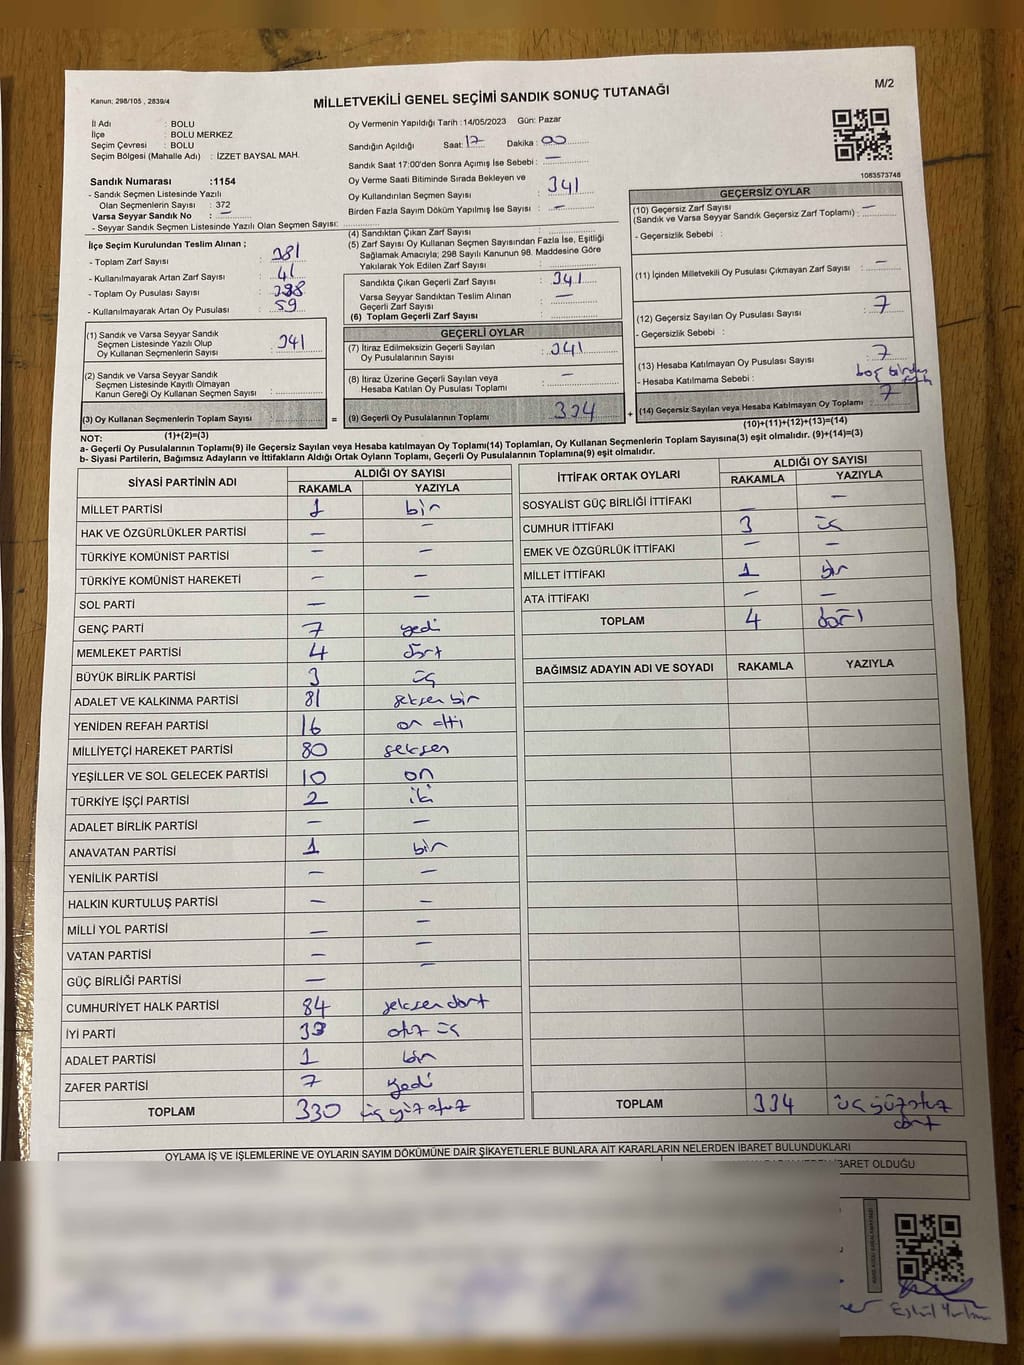 Kanun: 298/105 , 2839/4
MİLLETVEKİLİ GENEL SEÇİMİ SANDIK SONUÇ TUTANAĞI
M/2
İl Adı : BOLU
İlçe : BOLU MERKEZ
Seçim Çevresi : BOLU
Seçim Bölgesi (Mahalle Adı) : İZZET BAYSAL MAH.
Oy Vermenin Yapıldığı Tarih : 14/05/2023 Gün: Pazar
Sandığın Açıldığı Saat: 17 Dakika : 00
Sandık Saat 17:00'den Sonra Açımış İse Sebebi : —
Oy Verme Saati Bitiminde Sırada Bekleyen ve
Oy Kullandırılan Seçmen Sayısı : 341
Birden Fazla Sayım Döküm Yapılmış İse Sayısı : —
1083573748
Sandık Numarası :1154
- Sandık Seçmen Listesinde Yazılı
Olan Seçmenlerin Sayısı : 372
Varsa Seyyar Sandık No : —
- Seyyar Sandık Seçmen Listesinde Yazılı Olan Seçmen Sayısı:
İlçe Seçim Kurulundan Teslim Alınan ;
- Toplam Zarf Sayısı : 381
- Kullanılmayarak Artan Zarf Sayısı : 41
- Toplam Oy Pusulası Sayısı :
- Kullanılmayarak Artan Oy Pusulası : 59
(1) Sandık ve Varsa Seyyar Sandık
Seçmen Listesinde Yazılı Olup
Oy Kullanan Seçmenlerin Sayısı : 341
(2) Sandık ve Varsa Seyyar Sandık
Seçmen Listesinde Kayıtlı Olmayan
Kanun Gereği Oy Kullanan Seçmen Sayısı :
(3) Oy Kullanan Seçmenlerin Toplam Sayısı :
(1)+(2)=(3)
(4) Sandıktan Çıkan Zarf Sayısı :
(5) Zarf Sayısı Oy Kullanan Seçmen Sayısından Fazla İse, Eşitliği
Sağlamak Amacıyla; 298 Sayılı Kanunun 98. Maddesine Göre
Yakılarak Yok Edilen Zarf Sayısı :
Sandıkta Çıkan Geçerli Zarf Sayısı : 341
Varsa Seyyar Sandıktan Teslim Alınan
Geçerli Zarf Sayısı : —
(6) Toplam Geçerli Zarf Sayısı :
GEÇERLİ OYLAR
(7) İtiraz Edilmeksizin Geçerli Sayılan
Oy Pusulalarının Sayısı : 341
(8) İtiraz Üzerine Geçerli Sayılan veya
Hesaba Katılan Oy Pusulası Toplamı : —
= (9) Geçerli Oy Pusulalarının Toplamı : 334
GEÇERSİZ OYLAR
(10) Geçersiz Zarf Sayısı
(Sandık ve Varsa Seyyar Sandık Geçersiz Zarf Toplamı) : —
- Geçersizlik Sebebi :
(11) İçinden Milletvekili Oy Pusulası Çıkmayan Zarf Sayısı : —
(12) Geçersiz Sayılan Oy Pusulası Sayısı : 7
- Geçersizlik Sebebi :
(13) Hesaba Katılmayan Oy Pusulası Sayısı : 7
- Hesaba Katılmama Sebebi : boş birden
+ (14) Geçersiz Sayılan veya Hesaba Katılmayan Oy Toplamı : 7
(10)+(11)+(12)+(13)=(14)
NOT:
a- Geçerli Oy Pusulalarının Toplamı(9) ile Geçersiz Sayılan veya Hesaba katılmayan Oy Toplamı(14) Toplamları, Oy Kullanan Seçmenlerin Toplam Sayısına(3) eşit olmalıdır. (9)+(14)=(3)
b- Siyasi Partilerin, Bağımsız Adayların ve İttifakların Aldığı Ortak Oyların Toplamı, Geçerli Oy Pusulalarının Toplamına(9) eşit olmalıdır.
SİYASİ PARTİNİN ADI ALDIĞI OY SAYISI
RAKAMLA YAZIYLA
MİLLET PARTİSİ 1 bir
HAK VE ÖZGÜRLÜKLER PARTİSİ — —
TÜRKİYE KOMÜNİST PARTİSİ — —
TÜRKİYE KOMÜNİST HAREKETİ — —
SOL PARTİ — —
GENÇ PARTİ 7 yedi
MEMLEKET PARTİSİ 4 dört
BÜYÜK BİRLİK PARTİSİ 3 üç
ADALET VE KALKINMA PARTİSİ 81 seksen bir
YENİDEN REFAH PARTİSİ 16 on altı
MİLLİYETÇİ HAREKET PARTİSİ 80 seksen
YEŞİLLER VE SOL GELECEK PARTİSİ 10 on
TÜRKİYE İŞÇİ PARTİSİ 2 iki
ADALET BİRLİK PARTİSİ — —
ANAVATAN PARTİSİ 1 bir
YENİLİK PARTİSİ — —
HALKIN KURTULUŞ PARTİSİ — —
MİLLİ YOL PARTİSİ — —
VATAN PARTİSİ — —
GÜÇ BİRLİĞİ PARTİSİ — —
CUMHURİYET HALK PARTİSİ 84 seksen dört
İYİ PARTİ 33 otuz üç
ADALET PARTİSİ 1 bir
ZAFER PARTİSİ 7 yedi
TOPLAM 330 üç yüz otuz
İTTİFAK ORTAK OYLARI ALDIĞI OY SAYISI
RAKAMLA YAZIYLA
SOSYALİST GÜÇ BİRLİĞİ İTTİFAKI — —
CUMHUR İTTİFAKI 3 üç
EMEK VE ÖZGÜRLÜK İTTİFAKI — —
MİLLET İTTİFAKI 1 bir
ATA İTTİFAKI — —
TOPLAM 4 dört
BAĞIMSIZ ADAYIN ADI VE SOYADI RAKAMLA YAZIYLA
TOPLAM 334 üç yüz otuz
dört
OYLAMA İŞ VE İŞLEMLERİNE VE OYLARIN SAYIM DÖKÜMÜNE DAİR ŞİKAYETLERLE BUNLARA AİT KARARLARIN NELERDEN İBARET BULUNDUKLARI
İBARET OLDUĞU